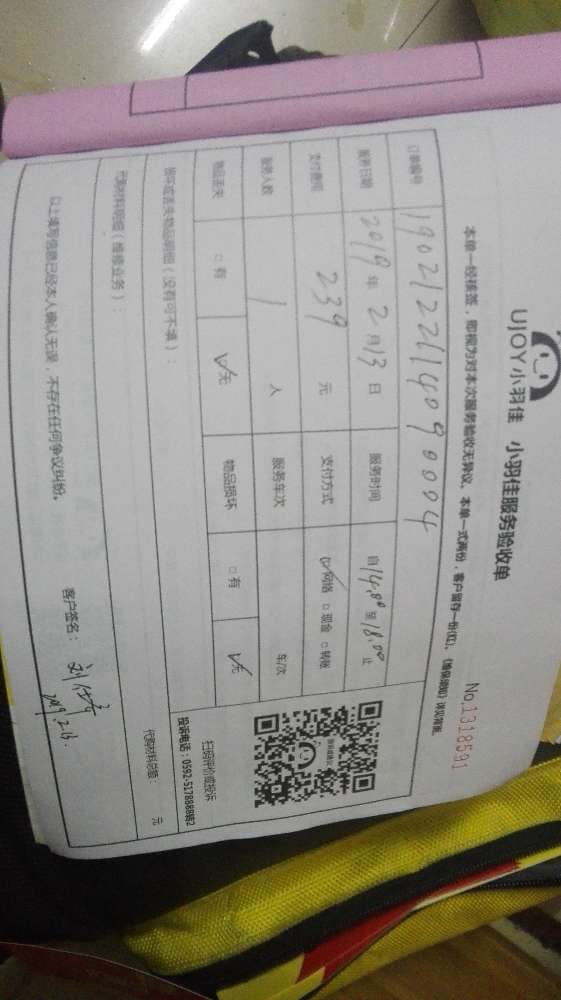 UJOY小羽佳 小羽佳服务验收单
No.1318591
本单一经核签，即视为对本次服务验收无异议。本单一式两份，客户留存一份(红)。《维保须知》详见背面。
订单编号 190212211409 0004
服务日期 2019年2月13日 服务时间 自14.00至18.00止
支付费用 239元 支付方式 ☑网络 □现金 □转账
服务人数 1人 服务车次 车/次
物品丢失 □有 ☑无 物品损坏 □有 ☑无
扫码评价或投诉
投诉电话：0592-5178888转2
损坏或丢失物品明细（没有可不填）：
代购材料明细（维修业务）：
代购材料总额： 元
以上填写信息已经本人确认无误，不存在任何争议纠纷。
客户签名：